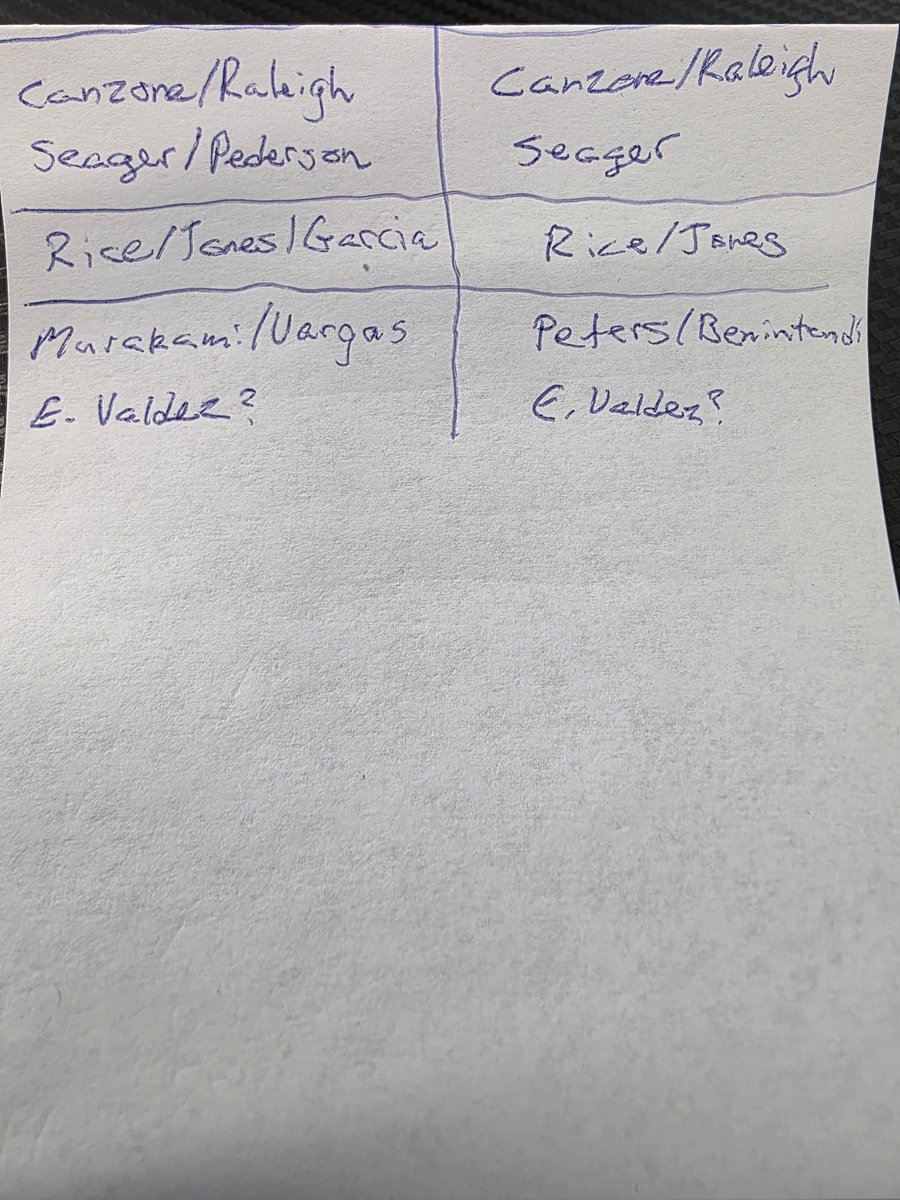 Canzone/Raleigh
Seager/Pederson
Canzone/Raleigh
Seager
Rice/Jones/Garcia
Rice/Jones
Murakami/Vargas
E. Valdez?
Peters/Benintendi
E. Valdez?